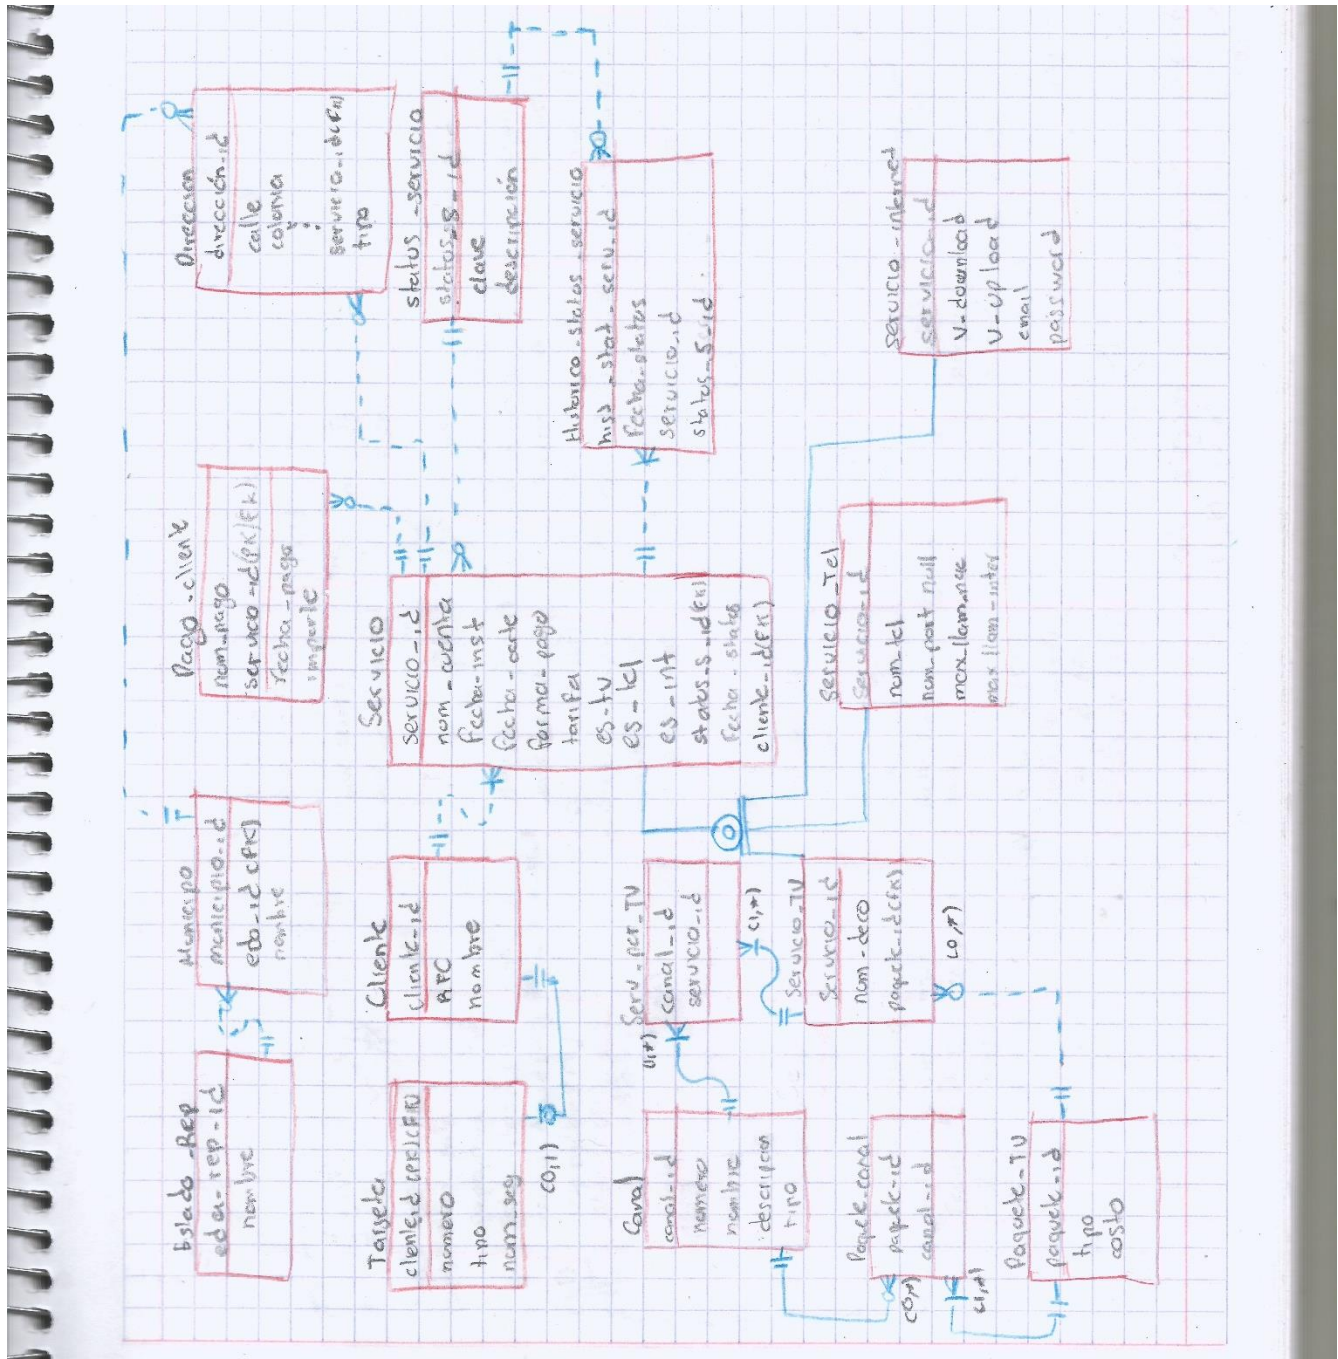 Estado_Rep
nombre
Municipo
municipio_id
edo_id (FK)
nombre
Pago_cliente
num_pago
servicio_id(PK)(FK)
fecha_pago
importe
Direccion
dirección_id
calle
colonia
servicio_id(FK)
tipo
Tarjeta
cliente_id (PK)(FK)
numero
tipo
num_seg
(0,1)
Cliente
cliente_id
RFC
nombre
Servicio
servicio_id
num_cuenta
fecha_inst
fecha_corte
forma_pago
tarifa
es_tv
es_tel
es_int
status_s_id(FK)
fecha_status
cliente_id(FK)
status_servicio
status_s_id
clave
descripción
Historico_status_servicio
hist_stat_serv_id
fecha_status
servicio_id
status_s_id
Canal
canal_id
numero
nombre
descripcion
tipo
Serv_per_TV
canal_id
servicio_id
(1,*)
(1,*)
Servicio_TV
Servicio_id
num_deco
paquete_id(FK)
(0,*)
Servicio_Tel
Servicio_id
num_tel
num_port null
max_llam_nac
max_llam_inter
Servicio_internet
servicio_id
v_download
v_upload
email
password
Paquete_canal
paquete_id
canal_id
(0,*)
(1,*)
Paquete_TV
paquete_id
tipo
costo